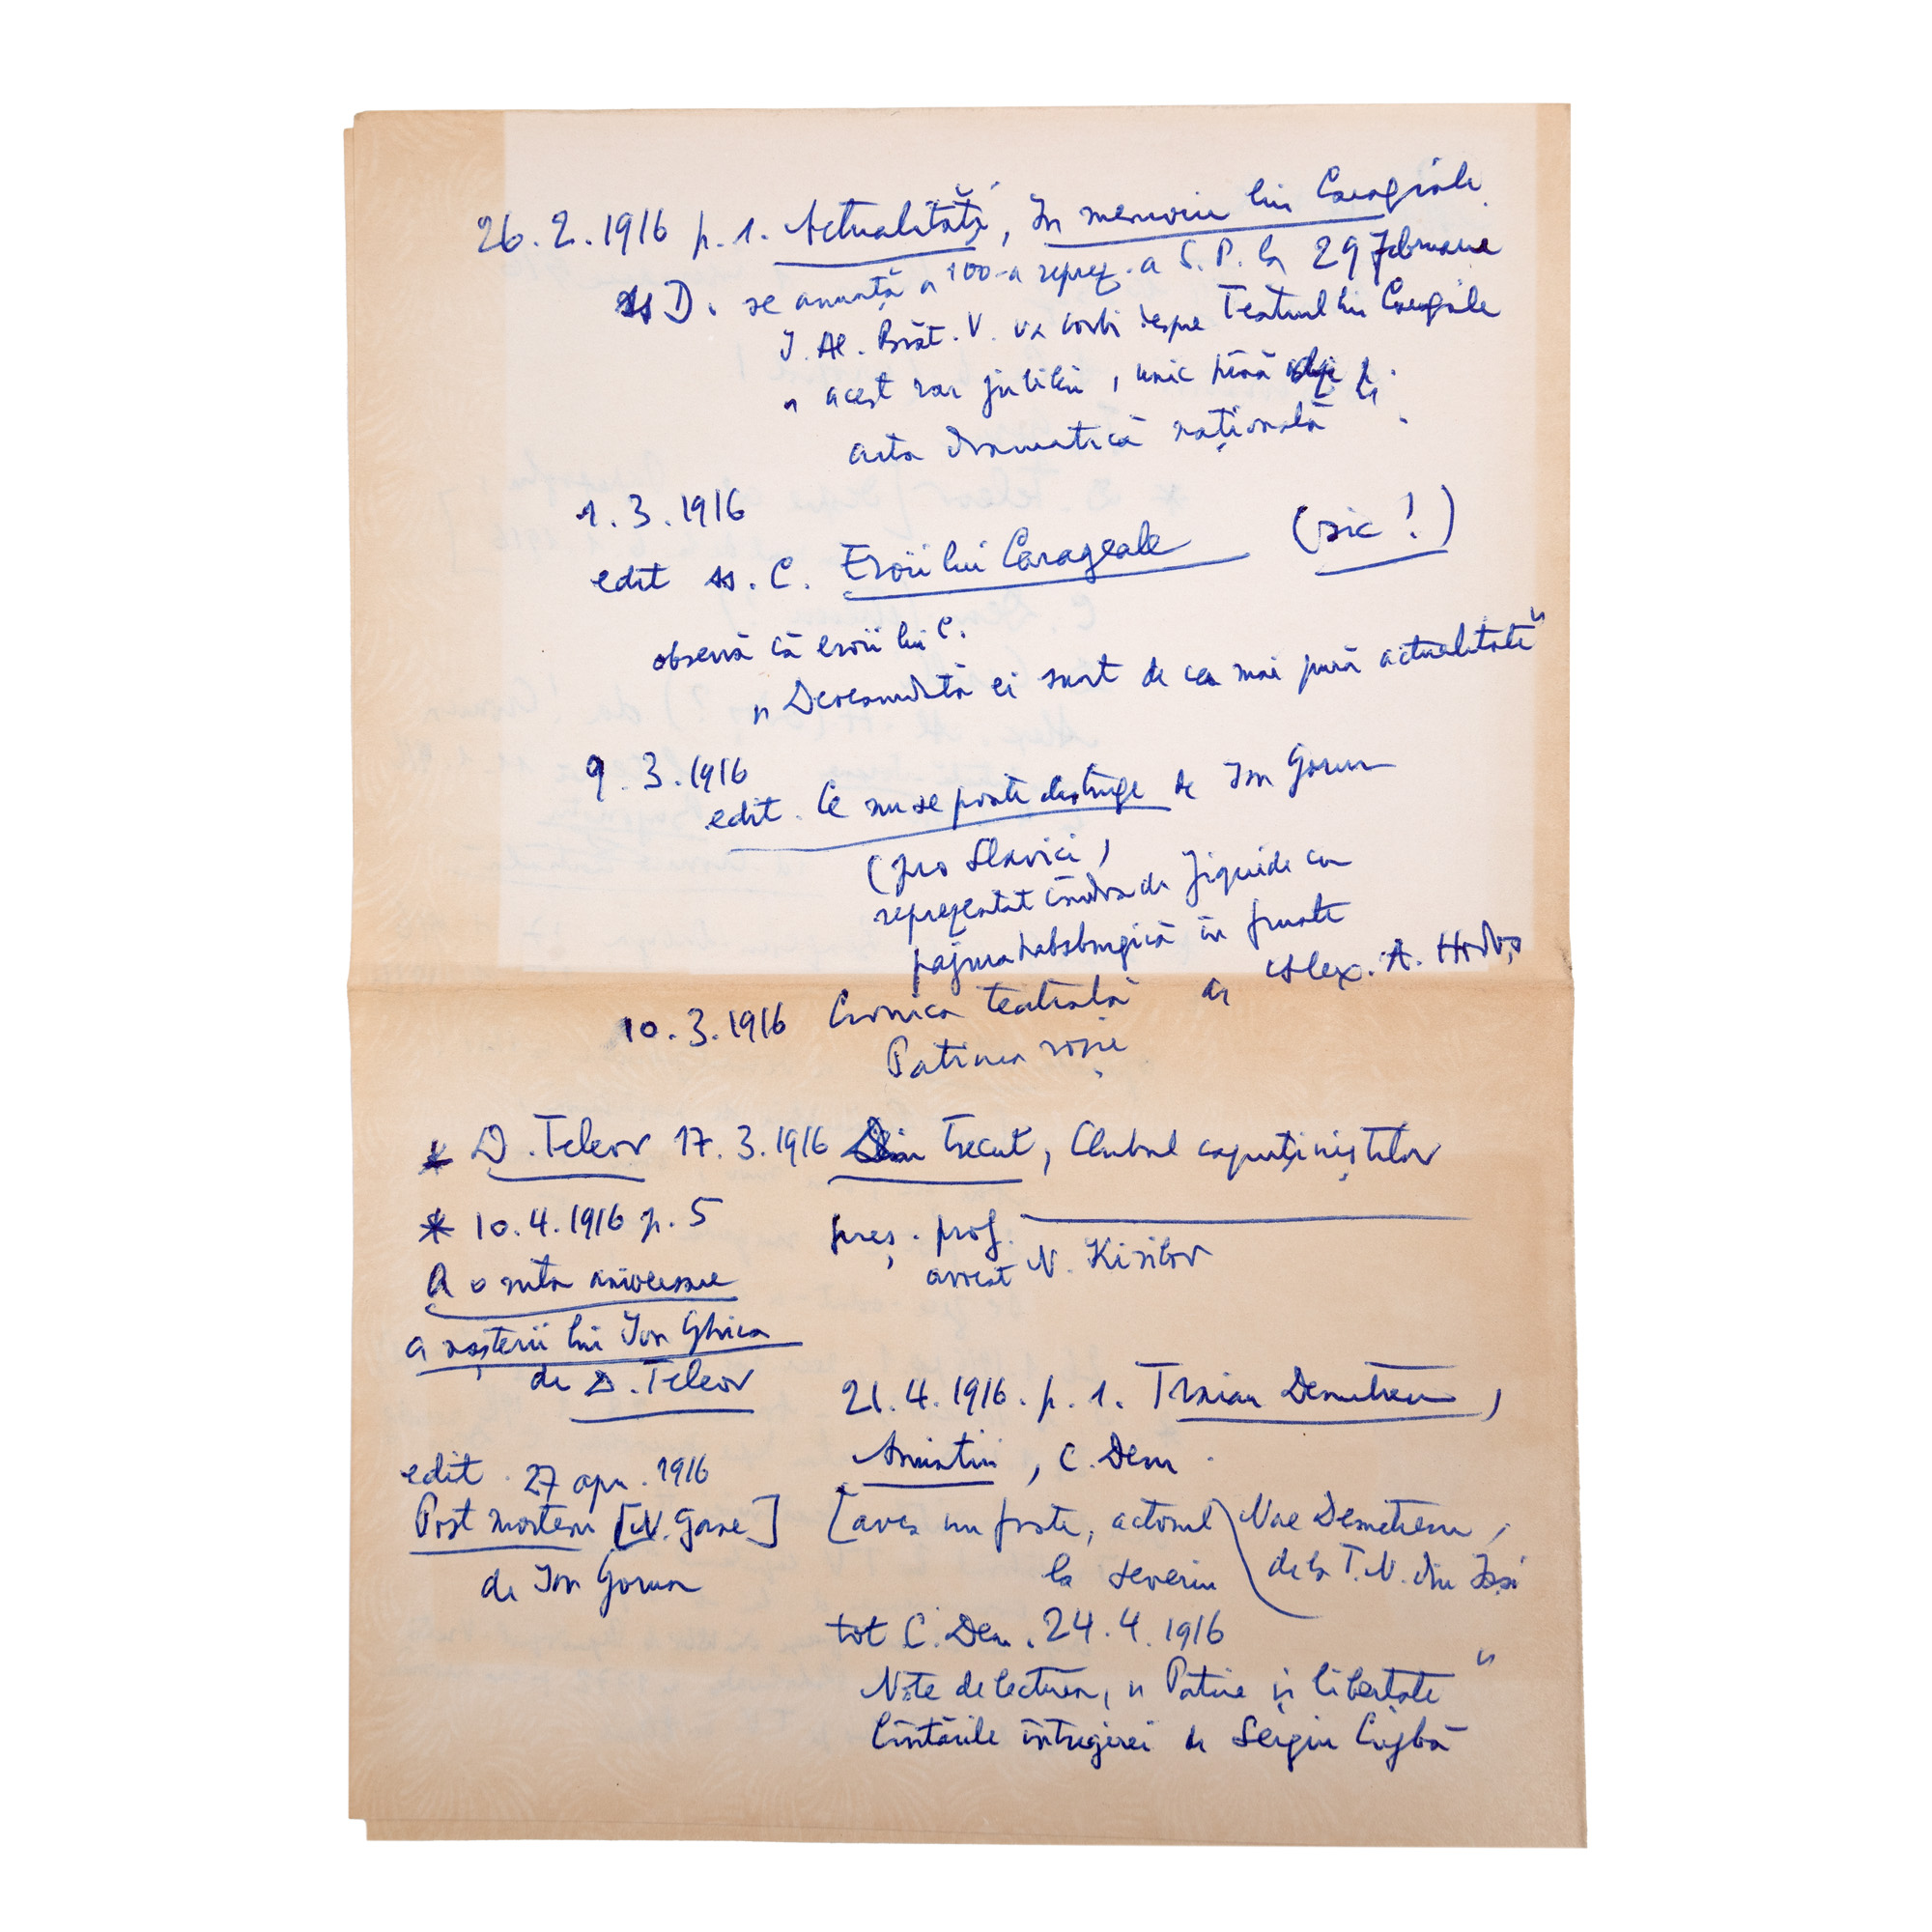 26.2.1916 p. 1. Actualități, In memoria lui Caragiale.
ss D. se anunță a 100-a reprez. a S. P. la 29 februarie
I. Al. Brăt. V. va vorbi despre Teatrul lui Caragiale
" acest rar jubileu, unic până
arta dramatică națională
1.3.1916
edit ss. C. Eroii lui Carageale (sic!)
observă că eroii lui C.
" Deocamdată ei sunt de cea mai pură actualitate"
9.3.1916
edit. Ce nu se poate distruge de Ion Gorun
(pro Slavici)
reprezentat de
pajura habsburgică în frunte
10.3.1916 Cronica teatrală de Alex. A. Hodoș
Patima roșie
* D. Teleor 17.3.1916 Din trecut, Clubul capuținiștilor
preș. prof.
avocat N. Kirilov
* 10.4.1916 p. 5
A o suta aniversare
a nașterii lui Ion Ghica
de D. Teleor
21.4.1916. p. 1. Traian Demetrescu,
Amintiri, C. Dem.
[avea un frate, actorul Nae Demetrescu,
la Severin de la T. N. din Iași
edit. 27 apr. 1916
Post mortem [N. Gane]
de Ion Gorun
tot C. Dem. 24.4.1916
Note de lectura, " Patrie și libertate "
Cîntările întregirei de Sergiu Cujbă